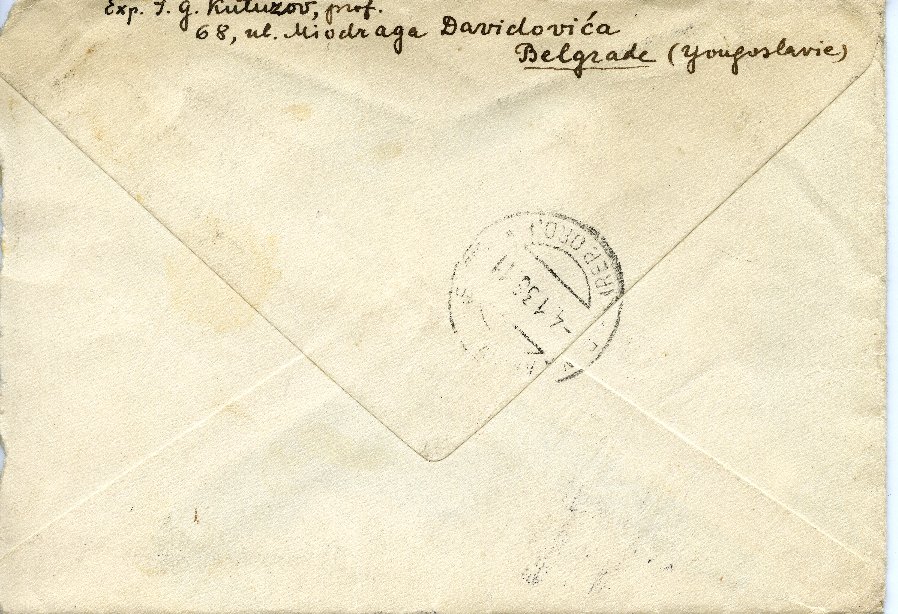 Exp. I. G. Kutuzov, prof.
68, ul. Miodraga Davidovića
Belgrade (Yougoslavie)
-4.1.36